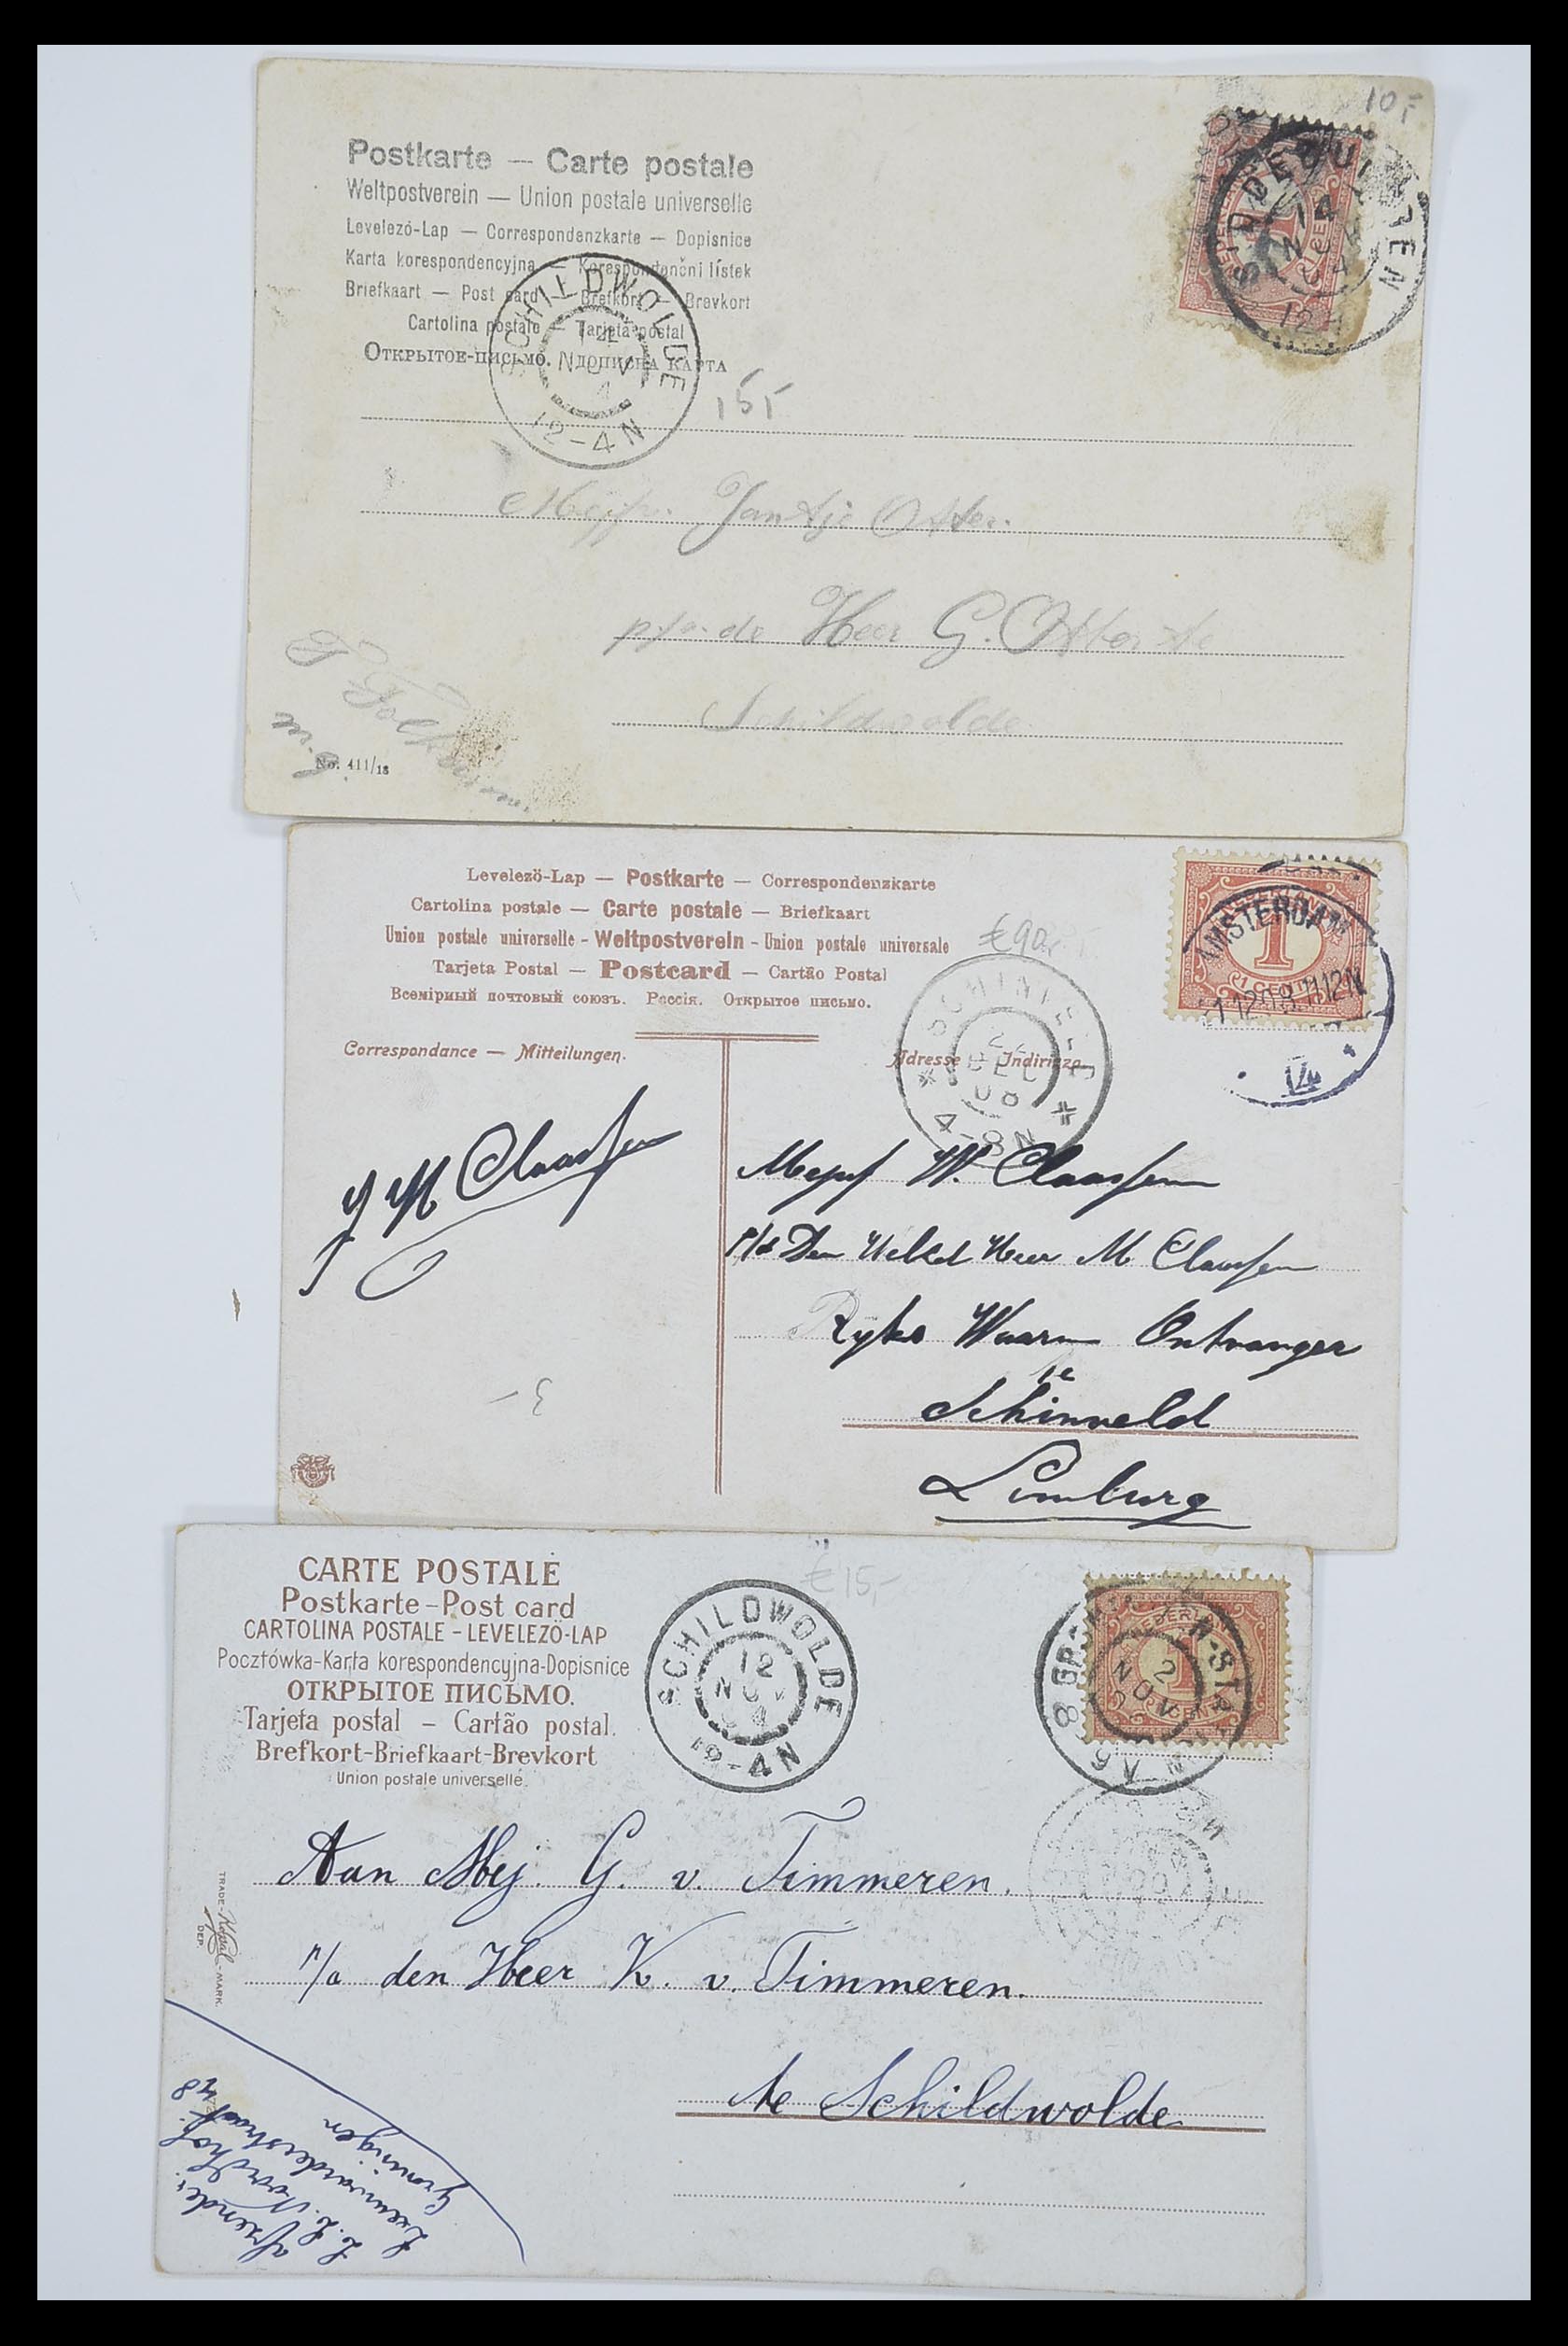 10,-
Postkarte — Carte postale
Weltpostverein — Union postale universelle
Levelező-Lap — Correspondenzkarte — Dopisnice
Karta korespondencyjna — Korespondenční lístek
Briefkaart — Post card — Brefkort — Brevkort
Cartolina postale — Tarjeta postal
Открытое-письмо. Дописна карта
SIDDEBUREN
14
NOV
04
12
NEDERLAND
1
1 CENT
SCHILDWOLDE
14
NOV
4
12-4N
15,-
Mejfr. Jantje Otter.
p/a. de Heer G. Otter te
Schildwolde
No. 411/18
Levelező-Lap — Postkarte — Correspondenzkarte
Cartolina postale — Carte postale — Briefkaart
Union postale universelle - Weltpostverein - Union postale universale
Tarjeta Postal — Postcard — Cartão Postal
Всемірный почтовый союзъ. Россія. Открытое письмо.
€90,-
AMSTERDAM
1.12.08.11-12N
14
1
1 CENT
SCHINVELD
DEC
08
4-8N
Correspondance — Mitteilungen.
Adresse — Indirizzo
J M Claassen
Mejuf W. Claassen
p/a Den WelEd Heer M Claassen
Ryks Waarn Ontvanger
te
Schinveld
Limburg
3-
CARTE POSTALE
Postkarte-Post card
CARTOLINA POSTALE - LEVELEZŐ-LAP
Pocztówka-Karta korespondencyjna-Dopisnice
ОТКРЫТОЕ ПИСЬМО.
Tarjeta postal - Cartão postal.
Brefkort-Briefkaart-Brevkort
Union postale universelle
€15,-
SCHILDWOLDE
12
NOV
04
12-4N
NEDERLAND
1
CENT
2
NOV
8-9V
Aan Mej. G. v. Timmeren.
p/a den Heer K. v. Timmeren.
te Schildwolde
TRADE-MARK.
DEP.
afzender
L. L. Noordhof.
Leeuwarderstraat
Groningen